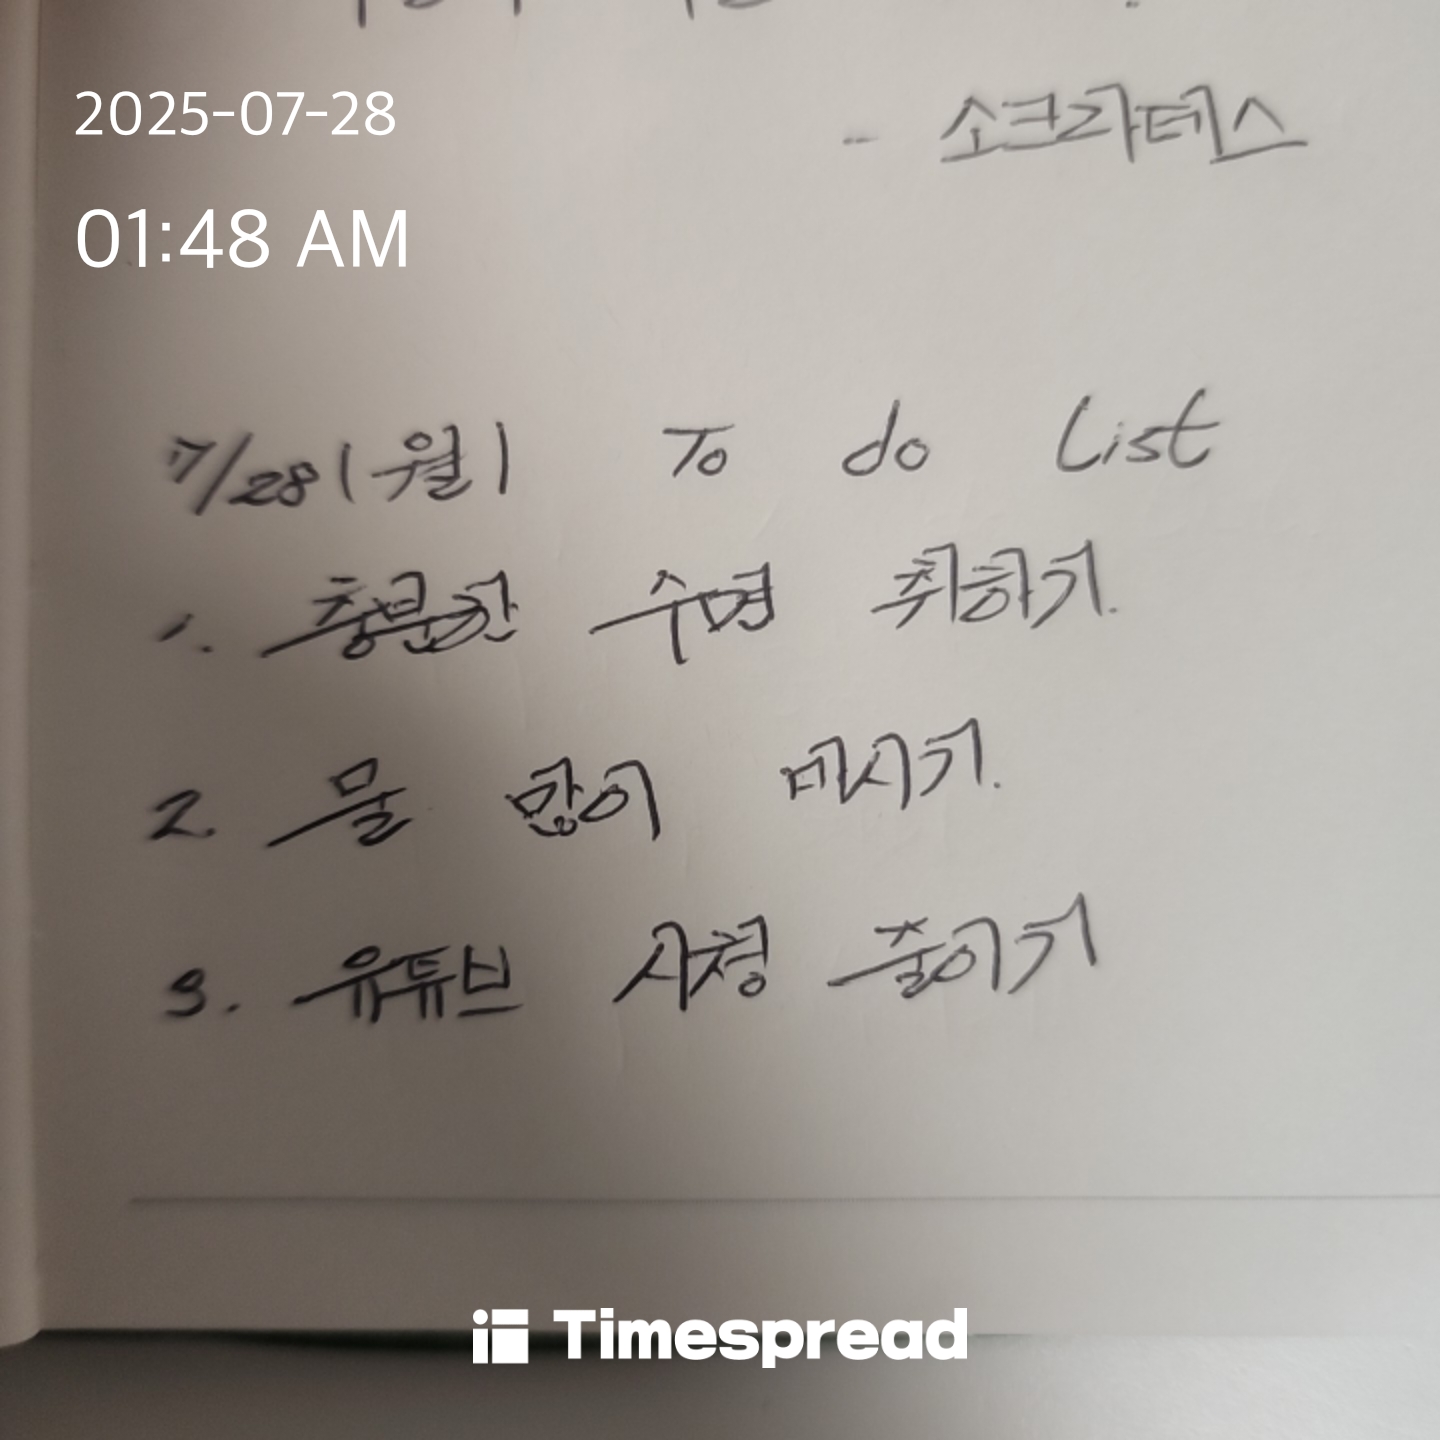 2025-07-28
- 소크라테스
01:48 AM
7/28(월) To do List
1. 충분한 수면 취하기.
2. 물 많이 마시기.
3. 유튜브 시청 줄이기
Timespread